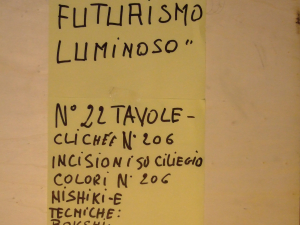 FUTURISMO
LUMINOSO"
N° 22 TAVOLE-
CLICHÉE N° 206
INCISIONI SU CILIEGIO
COLORI N° 206
NISHIKI-E
TECMICHE: